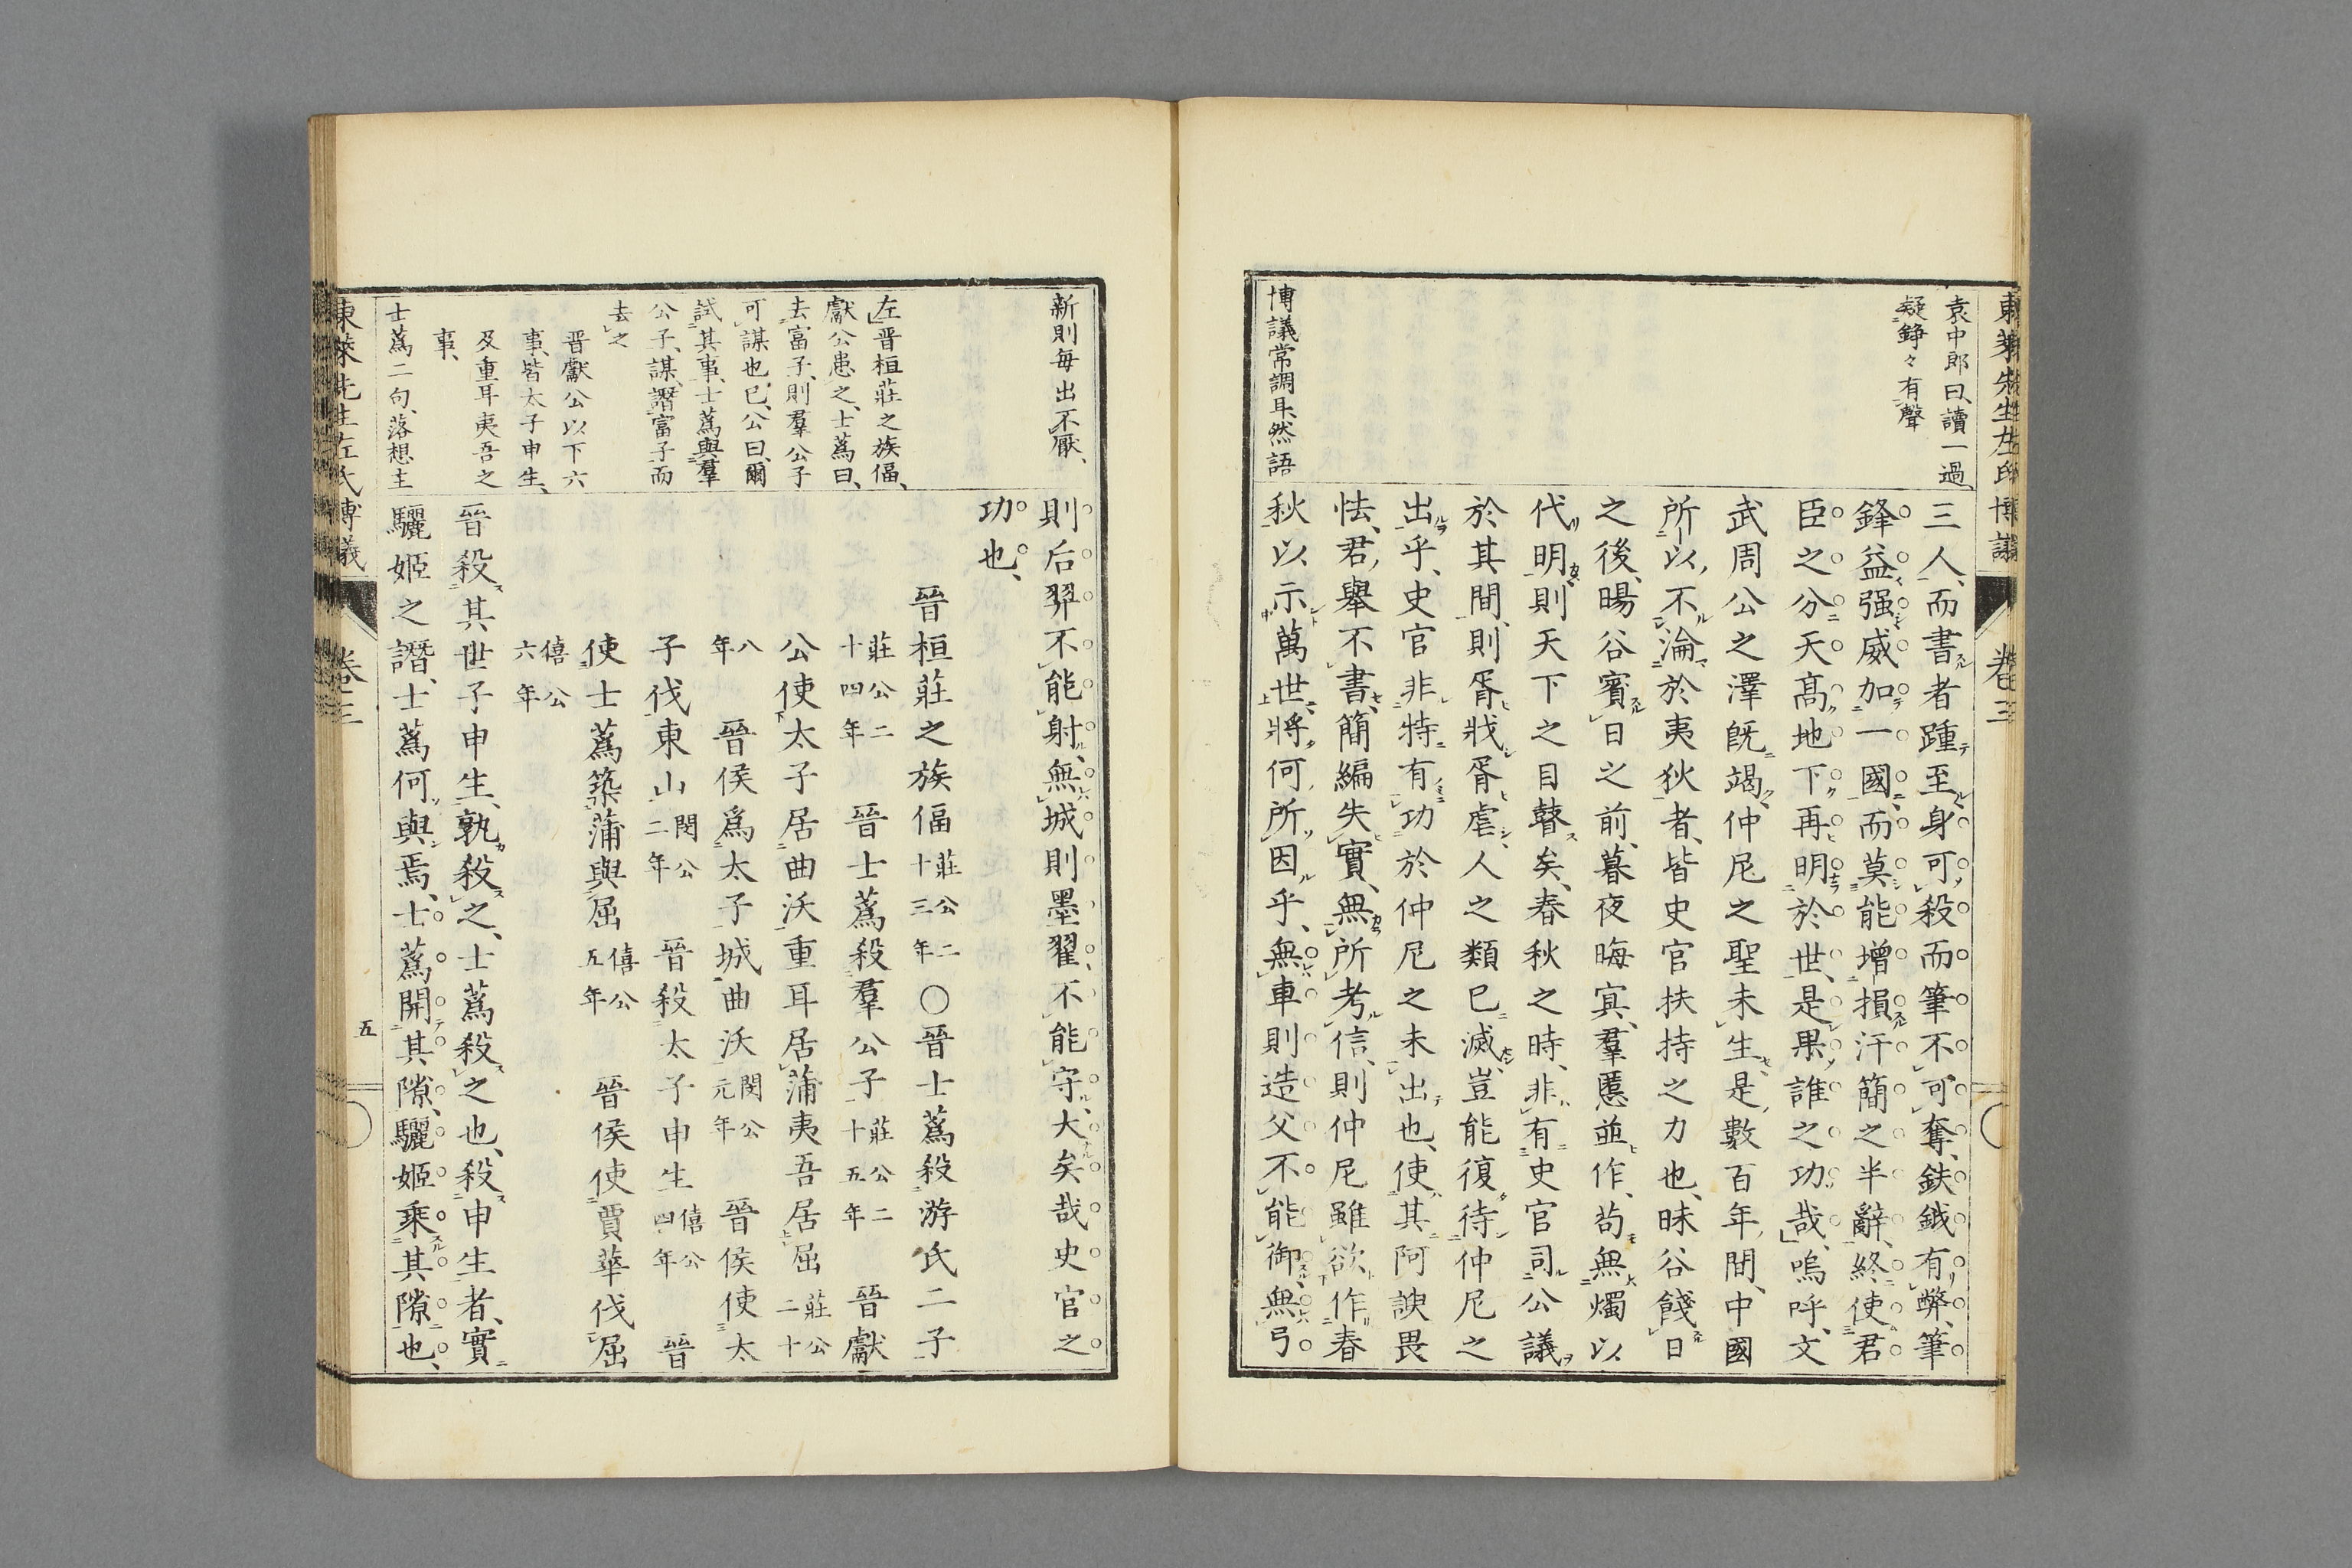 東萊先生左氏博議
卷三
袁中郎曰、讀一過、
凝錚々有聲
三人、而書者踵至、身可殺而筆不可奪、鈇鉞有弊、筆
鋒益强、威加一國、而莫能增損汗簡之半辭、終使君
臣之分、天高地下、再明於世、是果誰之功哉、嗚呼、文
武周公之澤既竭、仲尼之聖未生、是數百年間、中國
所以不淪於夷狄者、皆史官扶持之力也、昧谷餞日
之後、暘谷賓日之前、暮夜晦冥、羣慝並作、苟無燭以
代明、則天下之目瞽矣、春秋之時、非有史官司公議
於其間、則胥戕胥虐、人之類已滅、豈能復待仲尼之
出乎、史官非特有功於仲尼之未出也、使其阿諛畏
怯、君擧不書、簡編失實、無所考信、則仲尼雖欲作春
秋以示萬世、將何所因乎、無車則造父不能御、無弓
博議常調耳、然語
新則每出不厭、
則后羿不能射、無城則墨翟不能守、大矣哉史官之
功也、
晉桓莊之族偪 莊公二十三年 〇晉士蒍殺游氏二子
莊公二十四年 晉士蒍殺羣公子 莊公二十五年 晉獻
公使太子居曲沃重耳居蒲夷吾居屈 莊公二十
八年 晉侯爲太子城曲沃 閔公元年 晉侯使太
子伐東山 閔公二年 晉殺太子申生 僖公四年 晉
使士蒍築蒲與屈 僖公五年 晉侯使賈華伐屈
僖公六年
左晉桓莊之族偪、
獻公患之、士蒍曰、
去富子、則羣公子
可謀也已、公曰、爾
試其事、士蒍與羣
公子謀、譖富子而
去之
晋獻公以下六
事、皆太子申生、
及重耳夷吾之
事、
士蒍二句、落想主
晉殺其世子申生、孰殺之、士蒍殺之也、殺申生者、實
驪姬之譖、士蒍何與焉、士蒍開其隙、驪姬乘其隙也、
東萊先生左氏博議
卷三
五